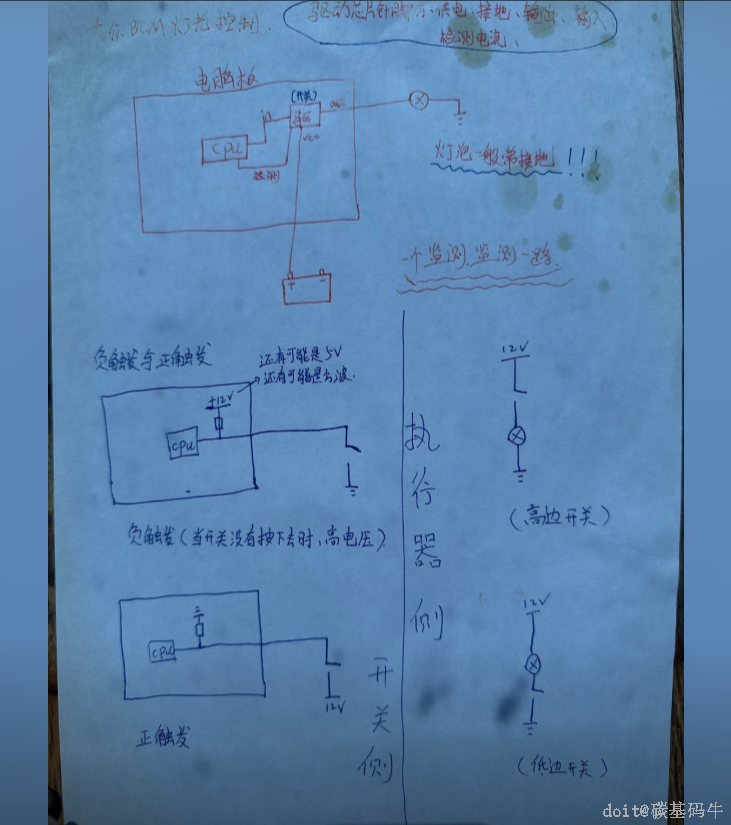 大众BCM灯光控制.
驱动芯片针脚: 供电、接地、输出、输入、
检测电流、
电脑板
(开关)
in
out
CPU
VCC
检测
灯泡一般常接地!!!
+ -
一个监测.监测一路.
负触发与正触发
还有可能是5V
还有可能是方波.
+12V
CPU
负触发(当开关没有按下去时、高电压)
CPU
12V
正触发
开关侧
执行器侧
12V
(高边开关)
12V
(低边开关)
doit@碳基码牛